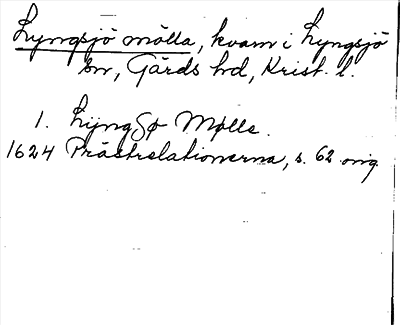 Lyngsjö mölla, kvarn i Lyngsjö
sn, Gärds hd, Krist. l.
1. LijngSø Mølle.
1624 Prästrelationerna, s. 62 orig